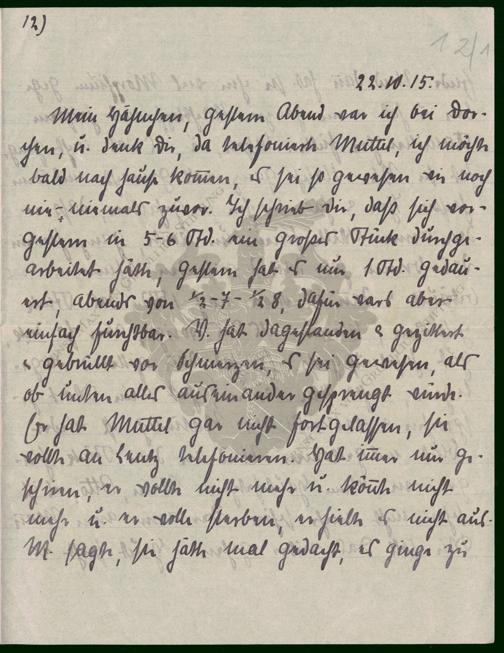 12)
12/1
22.10.15.
Mein Häschen, gestern Abend war ich bei Dor-
chen, u. denk Dir, da telefonierte Muttel, ich möchte
bald nach Hause kommen, es sei so gewesen wie noch
nie, niemals zuvor. Ich schrieb Dir, daß sich vor-
gestern in 5-6 Std. ein großes Stück durchge-
arbeitet hätte, gestern hat es nur 1 Std. gedau-
ert, abends von ½-7-½8, dafür wars aber
einfach furchtbar. V. hat dagestanden & gezittert
& gebrüllt vor Schmerzen, es sei gewesen, als
ob unten alles auseinander gesprengt würde.
Er hat Muttel gar nicht fortgelassen, sie
wollte an Lentz telefonieren. Hat immer nur ge-
schrien, er wollte nicht mehr u. könnte nicht
mehr u. er wolle sterben, er hielte es nicht aus.
M. sagte, sie hätte mal gedacht, es ginge zu